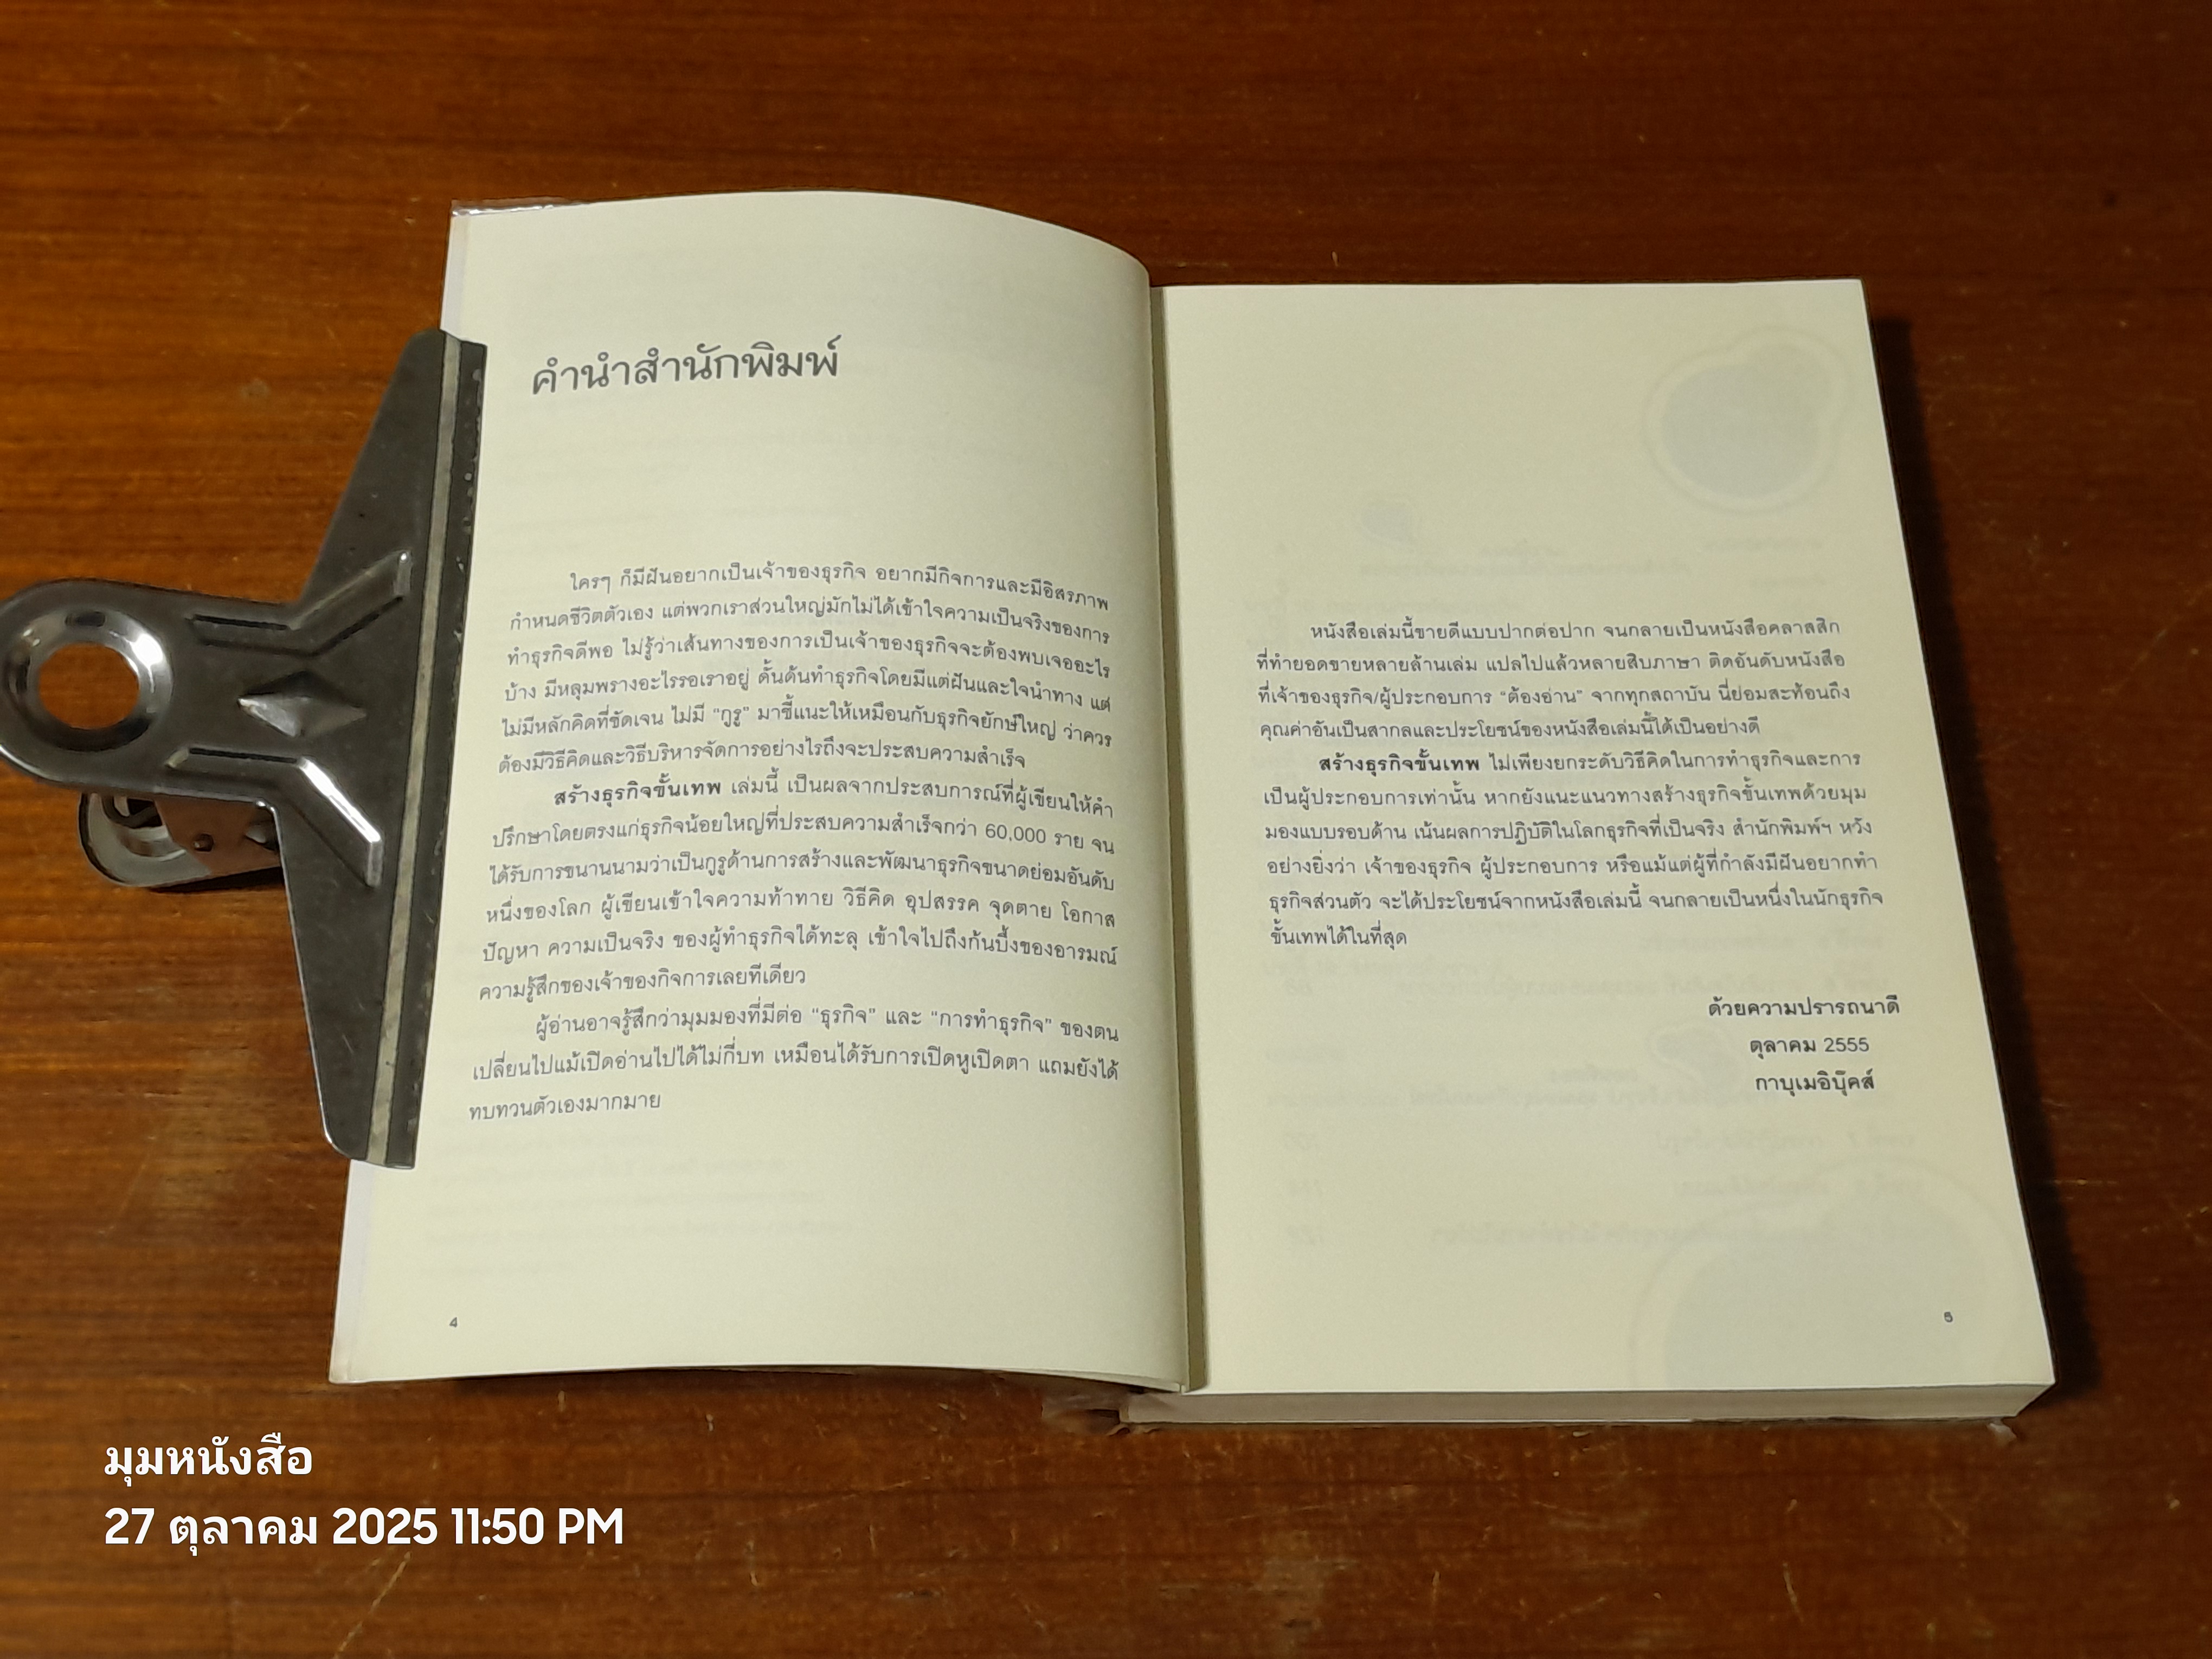 คำนำสำนักพิมพ์
ใครๆ ก็มีฝันอยากเป็นเจ้าของธุรกิจ อยากมีกิจการและมีอิสรภาพ
กำหนดชีวิตตัวเอง แต่พวกเราส่วนใหญ่มักไม่ได้เข้าใจความเป็นจริงของการ
ทำธุรกิจดีพอ ไม่รู้ว่าเส้นทางของการเป็นเจ้าของธุรกิจจะต้องพบเจออะไร
บ้าง มีหลุมพรางอะไรรอเราอยู่ ดั้นด้นทำธุรกิจโดยมีแต่ฝันและใจนำทาง แต่
ไม่มีหลักคิดที่ชัดเจน ไม่มี “กูรู” มาชี้แนะให้เหมือนกับธุรกิจยักษ์ใหญ่ ว่าควร
ต้องมีวิธีคิดและวิธีบริหารจัดการอย่างไรถึงจะประสบความสำเร็จ
สร้างธุรกิจขั้นเทพ เล่มนี้ เป็นผลจากประสบการณ์ที่ผู้เขียนให้คำ
ปรึกษาโดยตรงแก่ธุรกิจน้อยใหญ่ที่ประสบความสำเร็จกว่า 60,000 ราย จน
ได้รับการขนานนามว่าเป็นกูรูด้านการสร้างและพัฒนาธุรกิจขนาดย่อมอันดับ
หนึ่งของโลก ผู้เขียนเข้าใจความท้าทาย วิธีคิด อุปสรรค จุดตาย โอกาส
ปัญหา ความเป็นจริง ของผู้ทำธุรกิจได้ทะลุ เข้าใจไปถึงก้นบึ้งของอารมณ์
ความรู้สึกของเจ้าของกิจการเลยทีเดียว
ผู้อ่านอาจรู้สึกว่ามุมมองที่มีต่อ “ธุรกิจ” และ “การทำธุรกิจ” ของตน
เปลี่ยนไปแม้เปิดอ่านไปได้ไม่กี่บท เหมือนได้รับการเปิดหูเปิดตา แถมยังได้
ทบทวนตัวเองมากมาย
4
หนังสือเล่มนี้ขายดีแบบปากต่อปาก จนกลายเป็นหนังสือคลาสสิก
ที่ทำยอดขายหลายล้านเล่ม แปลไปแล้วหลายสิบภาษา ติดอันดับหนังสือ
ที่เจ้าของธุรกิจ/ผู้ประกอบการ “ต้องอ่าน” จากทุกสถาบัน นี่ย่อมสะท้อนถึง
คุณค่าอันเป็นสากลและประโยชน์ของหนังสือเล่มนี้ได้เป็นอย่างดี
สร้างธุรกิจขั้นเทพ ไม่เพียงยกระดับวิธีคิดในการทำธุรกิจและการ
เป็นผู้ประกอบการเท่านั้น หากยังแนะแนวทางสร้างธุรกิจขั้นเทพด้วยมุม
มองแบบรอบด้าน เน้นผลการปฏิบัติในโลกธุรกิจที่เป็นจริง สำนักพิมพ์ฯ หวัง
อย่างยิ่งว่า เจ้าของธุรกิจ ผู้ประกอบการ หรือแม้แต่ผู้ที่กำลังมีฝันอยากทำ
ธุรกิจส่วนตัว จะได้ประโยชน์จากหนังสือเล่มนี้ จนกลายเป็นหนึ่งในนักธุรกิจ
ขั้นเทพได้ในที่สุด
ด้วยความปรารถนาดี
ตุลาคม 2555
กาบุเมอิบุ๊คส์
5
มุมหนังสือ
27 ตุลาคม 2025 11:50 PM